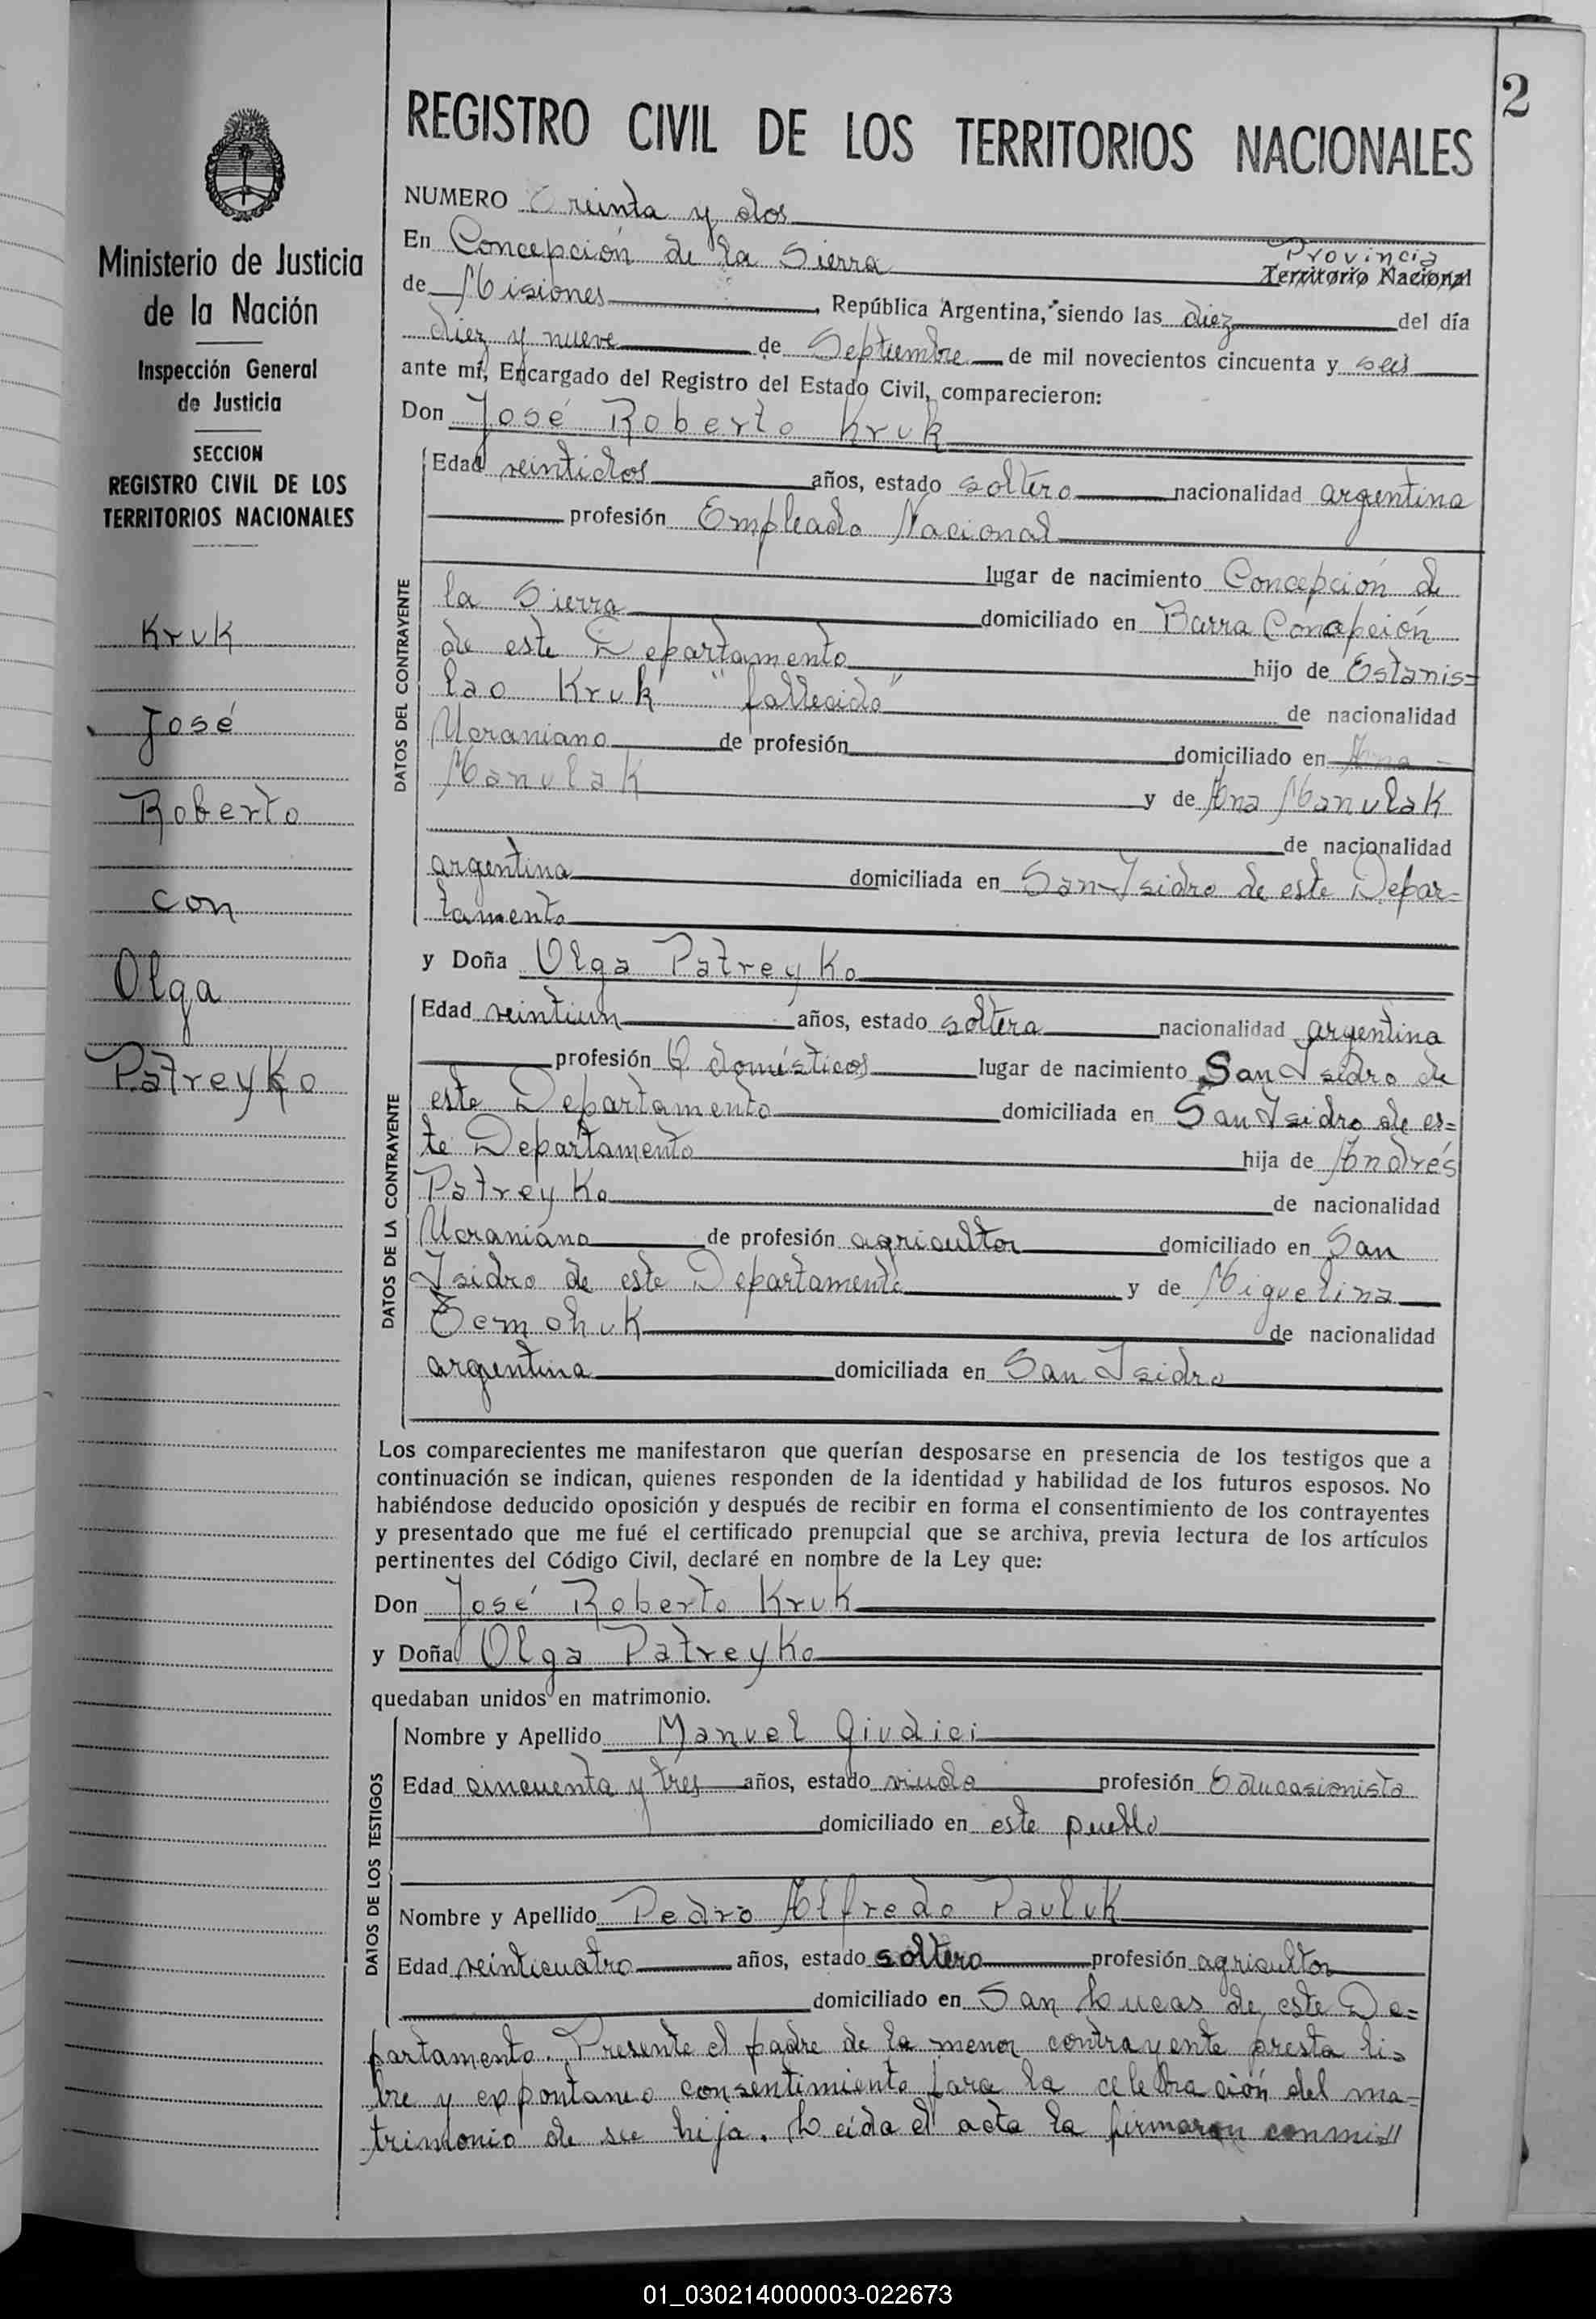 2
REGISTRO CIVIL DE LOS TERRITORIOS NACIONALES
Ministerio de Justicia
de la Nación
Inspección General
de Justicia
SECCION
REGISTRO CIVIL DE LOS
TERRITORIOS NACIONALES
Kruk
José
Roberto
con
Olga
Patreyko
NUMERO Treinta y dos
En Concepción de la Sierra Provincia Territorio Nacional
de Misiones, República Argentina, siendo las diez del día
diez y nueve de Septiembre de mil novecientos cincuenta y seis
ante mí, Encargado del Registro del Estado Civil, comparecieron:
Don José Roberto Kruk
DATOS DEL CONTRAYENTE
Edad veintidos años, estado soltero nacionalidad argentina
profesión Empleado Nacional
lugar de nacimiento Concepción de
la Sierra domiciliado en Barra Concepción
de este Departamento hijo de Estanis=
lao Kruk "fallecido" de nacionalidad
Ucraniano de profesión domiciliado en Ana
Manulak y de Ana Manulak
de nacionalidad
argentina domiciliada en San Isidro de este Depar=
tamento
y Doña Olga Patreyko
DATOS DE LA CONTRAYENTE
Edad veintiun años, estado soltera nacionalidad argentina
profesión Q. domésticos lugar de nacimiento San Isidro de
este Departamento domiciliada en San Isidro de es=
te Departamento hija de Andrés
Patreyko de nacionalidad
Ucraniano de profesión agricultor domiciliado en San
Isidro de este Departamento y de Miguelina
Zemchuk de nacionalidad
argentina domiciliada en San Isidro
Los comparecientes me manifestaron que querían desposarse en presencia de los testigos que a
continuación se indican, quienes responden de la identidad y habilidad de los futuros esposos. No
habiéndose deducido oposición y después de recibir en forma el consentimiento de los contrayentes
y presentado que me fué el certificado prenupcial que se archiva, previa lectura de los artículos
pertinentes del Código Civil, declaré en nombre de la Ley que:
Don José Roberto Kruk
y Doña Olga Patreyko
quedaban unidos en matrimonio.
DATOS DE LOS TESTIGOS
Nombre y Apellido Manuel Giudici
Edad cincuenta y tres años, estado viudo profesión Educasionista
domiciliado en este pueblo
Nombre y Apellido Pedro Alfredo Pauluk
Edad veinticuatro años, estado soltero profesión agricultor
domiciliado en San Lucas de este De=
partamento. Presente el padre de la menor contrayente presta li=
bre y expontaneo consentimiento para la celebración del ma=
trimonio de su hija. Leida el acta la firmaron conmi//
01_030214000003-022673